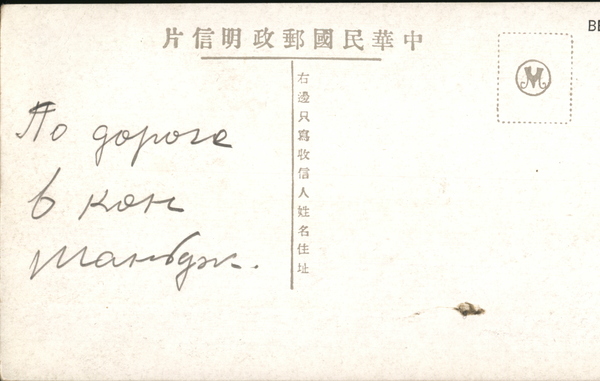 片信明政郵國民華中
右邊只寫收信人姓名住址
По дороге
в кон
BE